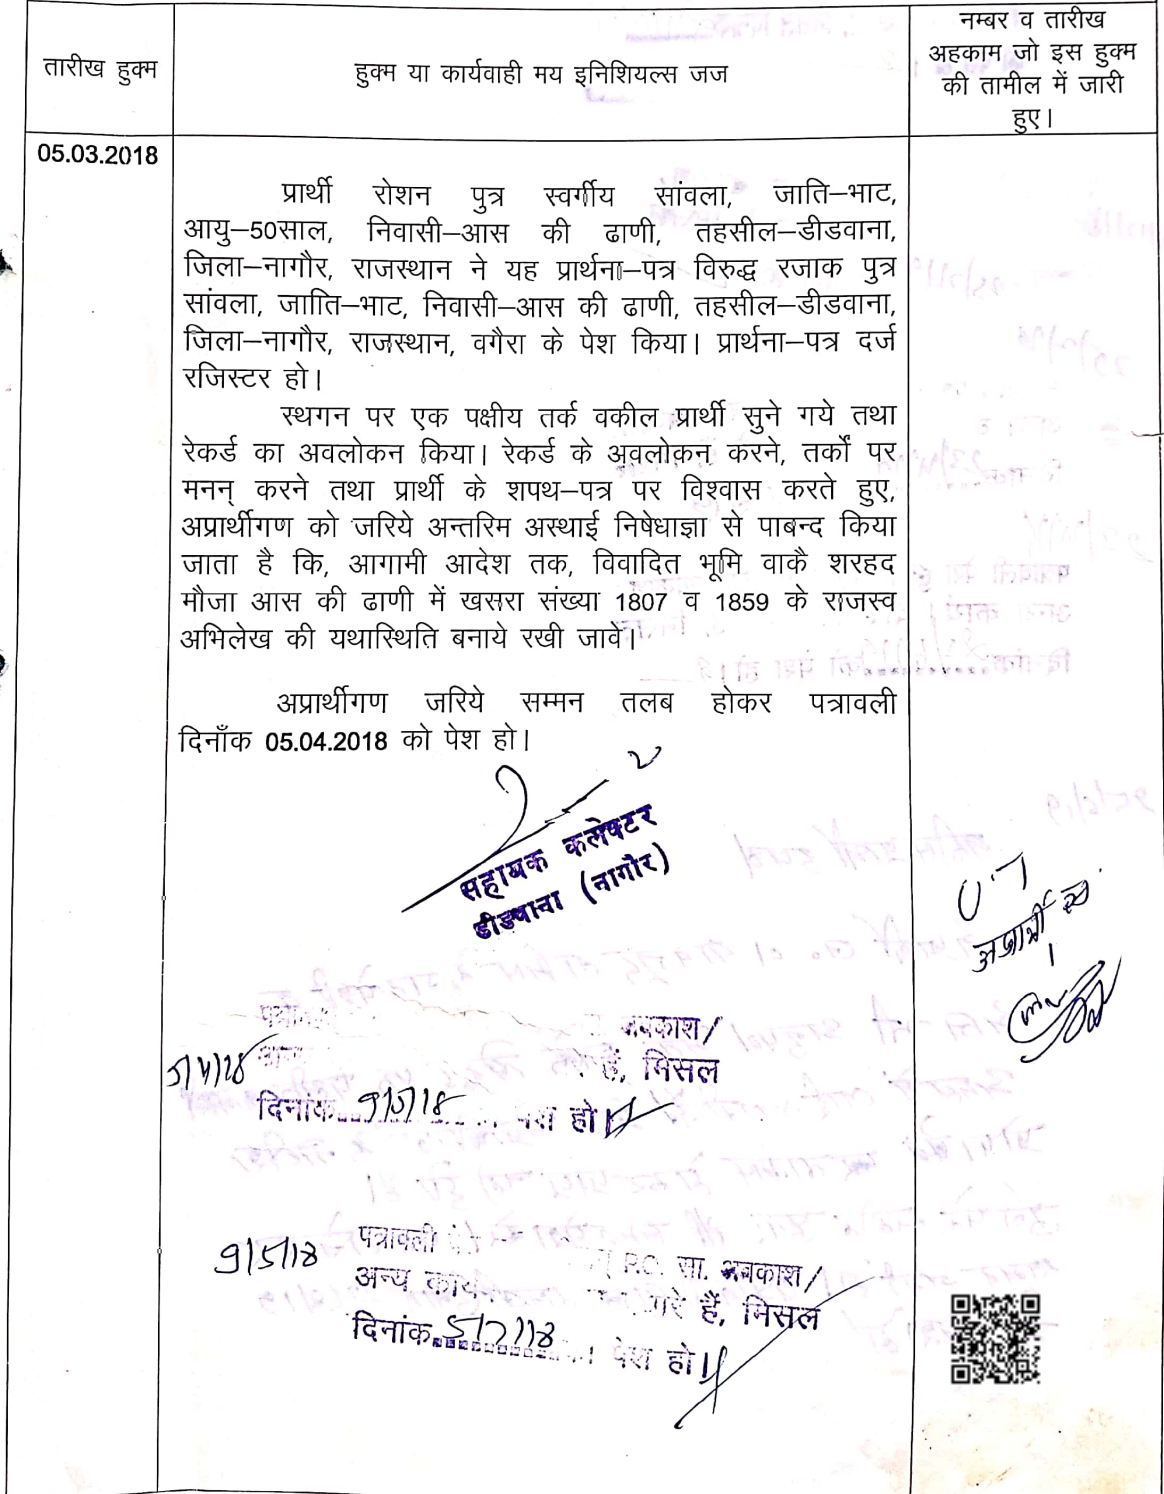 तारीख हुक्म
हुक्म या कार्यवाही मय इनिशियल्स जज
नम्बर व तारीख
अहकाम जो इस हुक्म
की तामील में जारी
हुए।
05.03.2018
प्रार्थी रोशन पुत्र स्वर्गीय सांवला, जाति–भाट,
आयु–50साल, निवासी–आस की ढाणी, तहसील–डीडवाना,
जिला–नागौर, राजस्थान ने यह प्रार्थना–पत्र विरुद्ध रजाक पुत्र
सांवला, जाति–भाट, निवासी–आस की ढाणी, तहसील–डीडवाना,
जिला–नागौर, राजस्थान, वगैरा के पेश किया। प्रार्थना–पत्र दर्ज
रजिस्टर हो।
स्थगन पर एक पक्षीय तर्क वकील प्रार्थी सुने गये तथा
रेकर्ड का अवलोकन किया। रेकर्ड के अवलोकन करने, तर्कों पर
मनन् करने तथा प्रार्थी के शपथ–पत्र पर विश्वास करते हुए,
अप्रार्थीगण को जरिये अन्तरिम अस्थाई निषेधाज्ञा से पाबन्द किया
जाता है कि, आगामी आदेश तक, विवादित भूमि वाकै शरहद
मौजा आस की ढाणी में खसरा संख्या 1807 व 1859 के राजस्व
अभिलेख की यथास्थिति बनाये रखी जावें।
अप्रार्थीगण जरिये सम्मन तलब होकर पत्रावली
दिनाँक 05.04.2018 को पेश हो।
सहायक कलेक्टर
डीडवाना (नागौर)
अप्रार्थी
अवकाश/
5/4/18
हैं, मिसल
दिनांक 9/5/18 पेश हो।
9/5/18
पत्रावली P.O. सा. अवकाश/
अन्य हैं, मिसल
दिनांक 5/7/18 पेश हो।